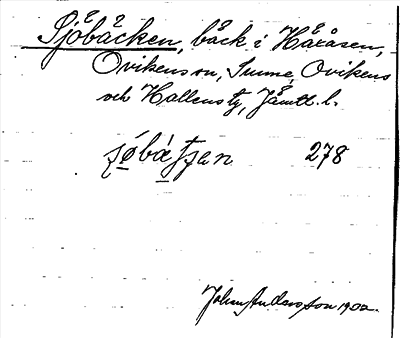 Sjöbäcken, bäck i Håråsen,
Ovikens sn, Sunne, Ovikens
och Hallens tg, Jämtl. l.
sø̨bàtsen 278
Johan Andersson 1902.